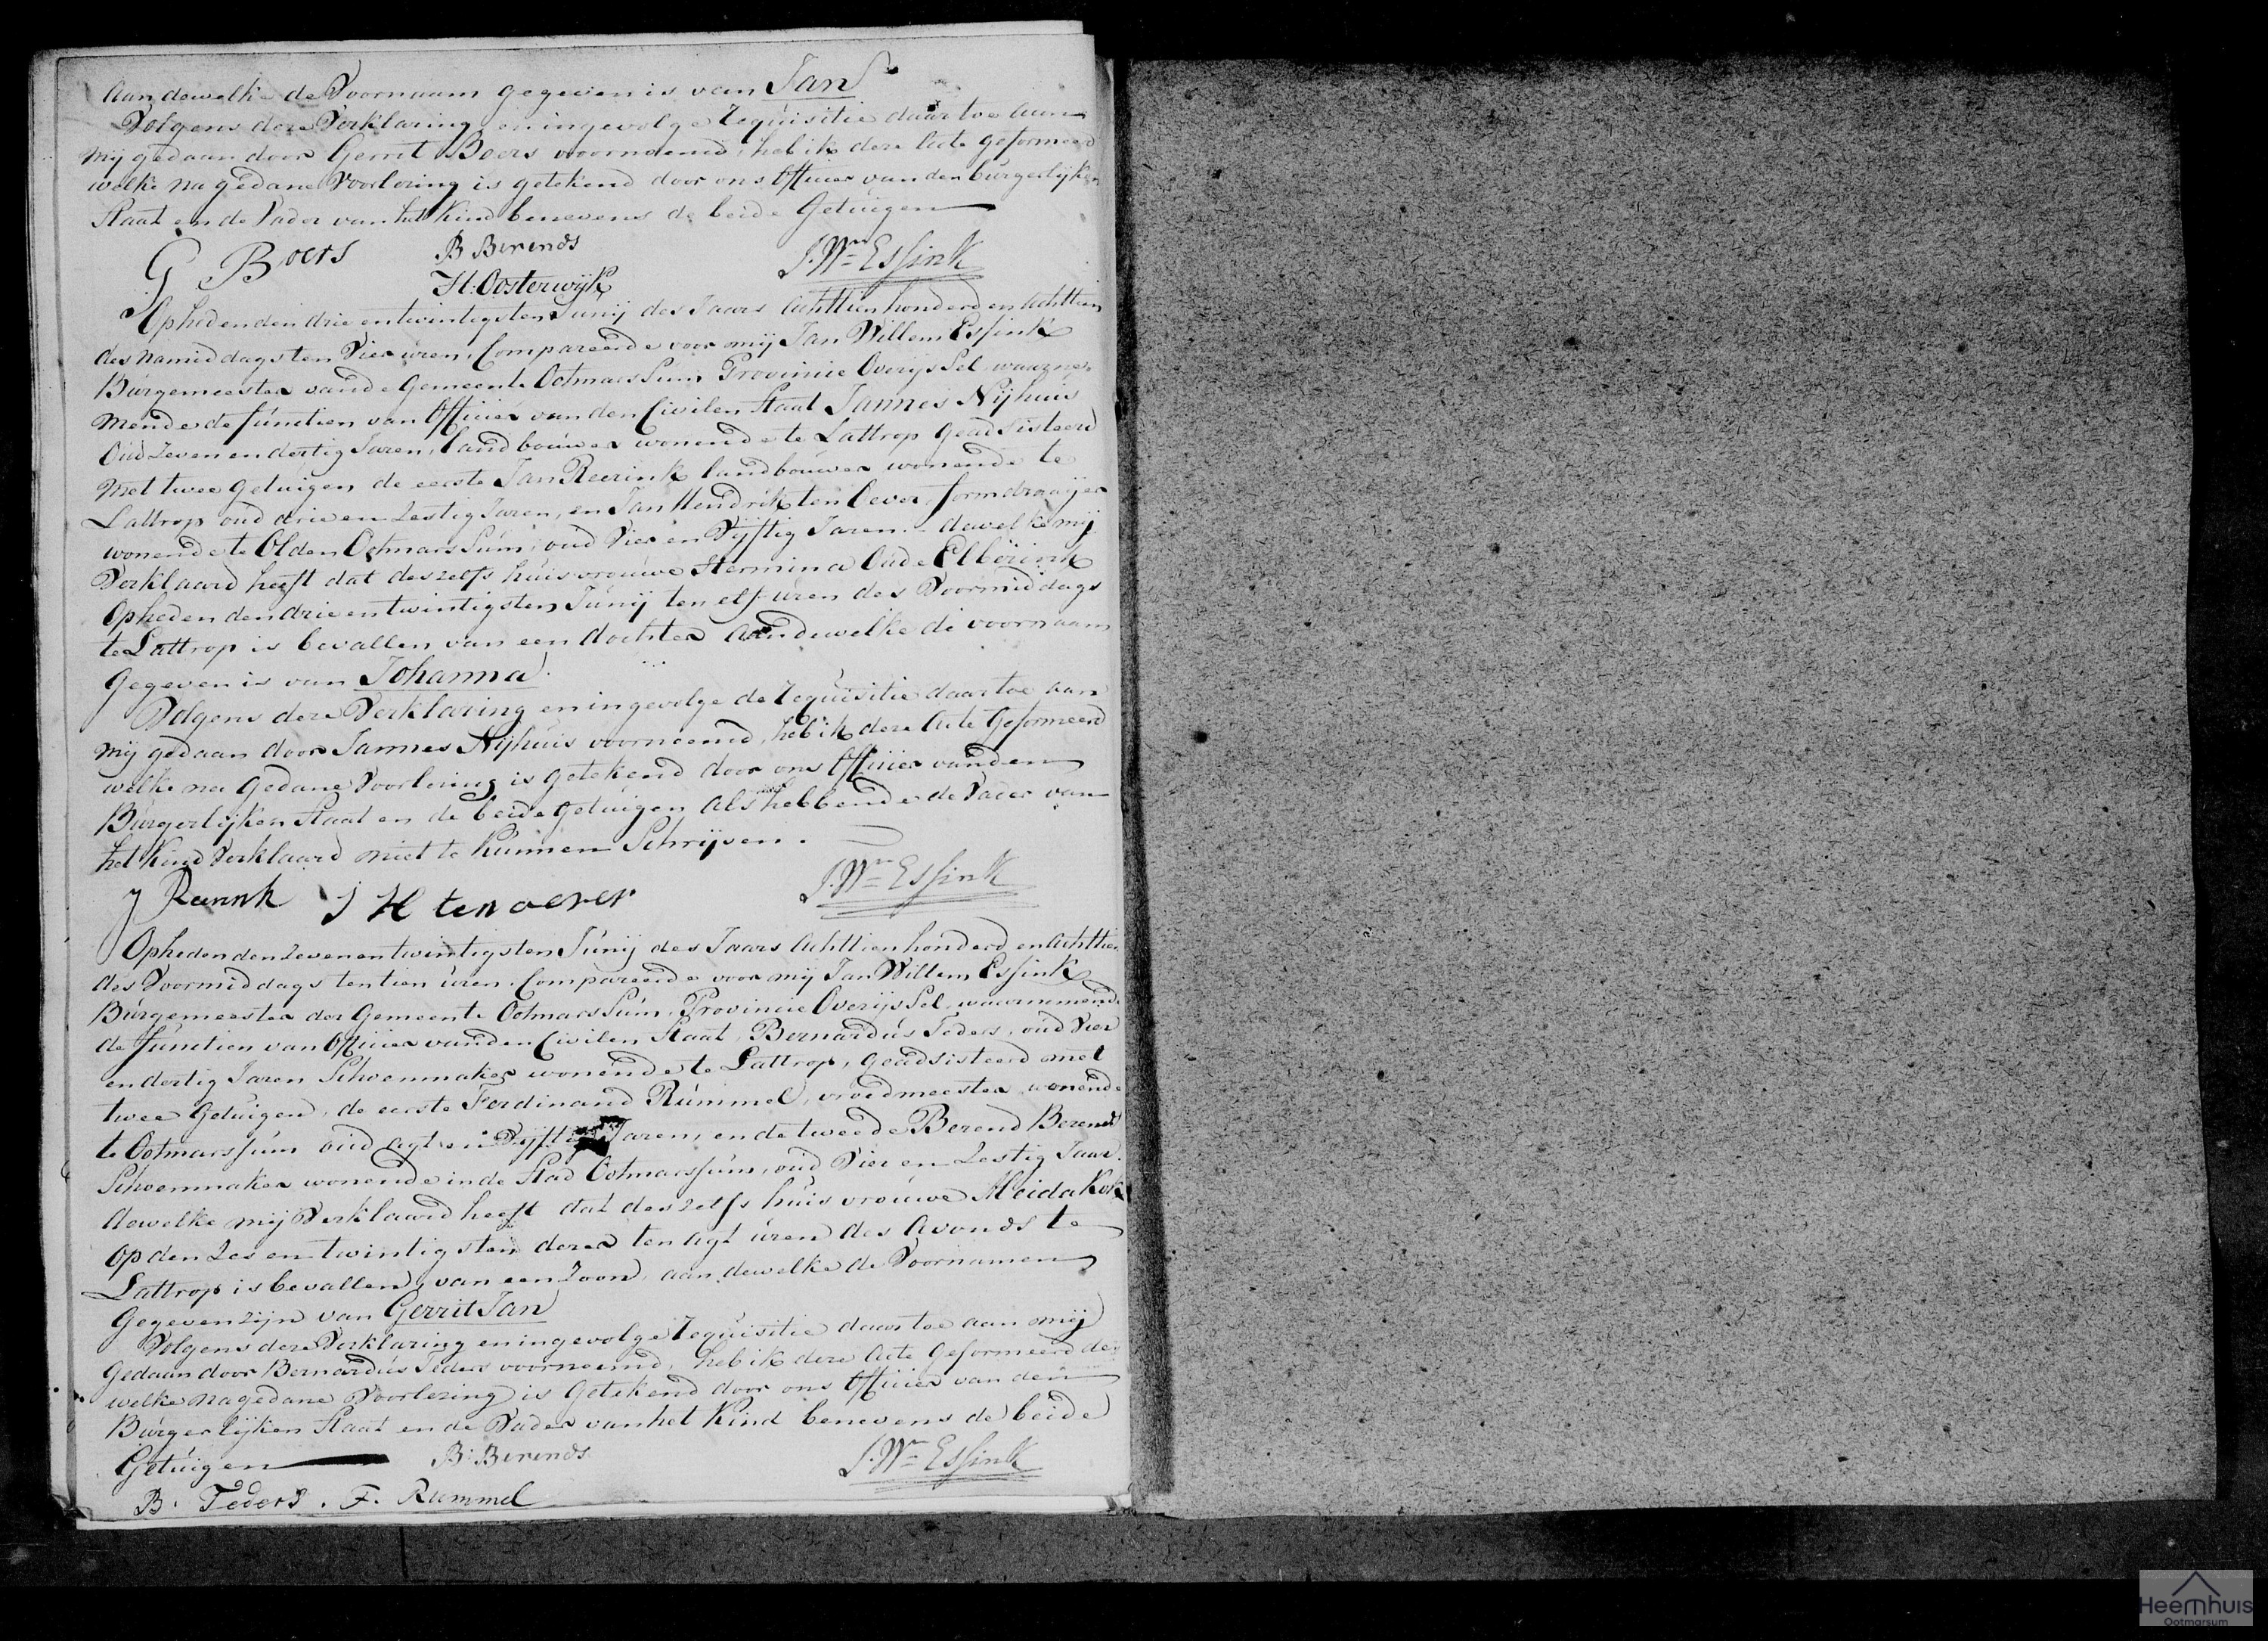 Aan dewelke de Voornaam gegeven is van Jan
Volgens deze Verklaring en ingevolge requisitie daartoe aan
mij gedaan door Gerrit Boers voornoemd, heb ik deze Acte geformeerd
welke na gedane Voorlezing is getekend door ons Officier van den burgerlijken
Staat en de Vader van het Kind benevens de beide Getuigen
G Boers B Berends J. Wm Essink
H. Oosterwijk
Op heden den drie en twintigsten Junij des Jaars Achttien honderd en Achttien
des namiddags ten Vier uren, Compareerde voor mij Jan Willem Essink
Burgemeester van de Gemeente Ootmarssum Provincie Overijssel, waarne-
mende de functien van Officier van den Civilen Staat Jannes Nijhuis
Oud Zeven en dertig Jaren, landbouwer wonende te Lattrop geadsisteerd
met twee getuigen de eerste Jan Reerink landbouwer wonende te
Lattrop oud drie en Zestig Jaren, en Jan Hendrik ten Oever formdraaijer
wonende te Olden Ootmarssum, oud Vier en Vijftig Jaren - dewelke mij
Verklaard heeft dat deszelfs huisvrouwe Hermina Oude Elberink
Op heden den drie en twintigsten Junij ten elf uren des Voormiddags
te Lattrop is bevallen van een dochter aan dewelke de voornaam
Gegeven is van Johanna
Volgens deze Verklaring en ingevolge de requisitie daartoe aan
mij gedaan door Jannes Nijhuis voornoemd, heb ik deze Acte Geformeerd
welke na Gedane Voorlezing is getekend door ons Officier van den
Burgerlijken Staat en de beide getuigen als hebbende de Vader van
het Kind Verklaard niet te kunnen Schrijven.
J Reerink J H ten oever J. Wm Essink
Op heden den Zeven en twintigsten Junij des Jaars Achttien honderd en Achttien
des Voormiddags ten tien uren. Compareerde voor mij Jan Willem Essink
Burgemeester der Gemeente Ootmarssum, Provincie Overijssel, waarnemende
de functien van Officier van den Civilen Staat, Bernardus Teders, oud Vier
en dertig Jaren Schoenmaker wonende te Lattrop, geadsisteerd met
twee Getuigen, de eerste Ferdinand Rummel, vroedmeester wonende
te Ootmarssum oud agt en Vijftig Jaren, en de tweede Berend Berends
Schoenmaker wonende in de Stad Ootmarssum, oud Vier en Zestig Jaar.
dewelke mij Verklaard heeft dat deszelfs huisvrouwe Aleida Kok
op den Zes en twintigsten dezer ten agt uren des Avonds te
Lattrop is bevallen van een Zoon, aan dewelke de Voornamen
Gegeven zijn van Gerrit Jan
Volgens deze Verklaring en ingevolge requisitie daartoe aan mij
Gedaan door Bernardus Teders voornoemd, heb ik deze Acte Geformeerd de
welke na gedane Voorlezing is Getekend door ons Officier van den
Burgerlijken Staat en de Vader van het Kind benevens de beide
Getuigen B. Berends J. Wm Essink
B. Teders. F. Rummel
Heemhuis
Ootmarsum